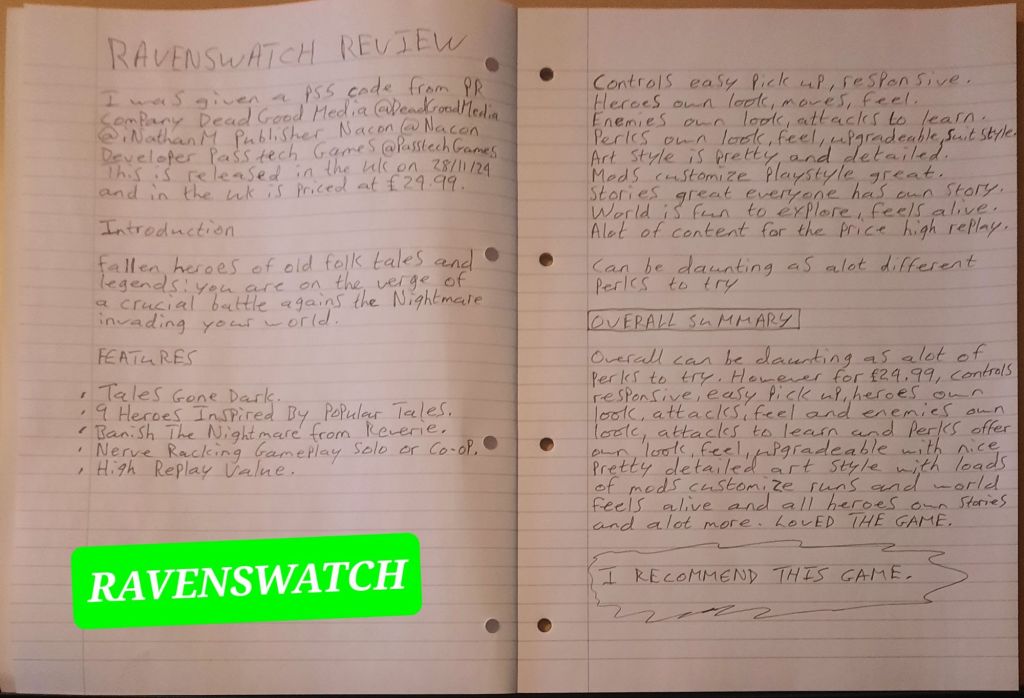 RAVENSWATCH REVIEW
I was given a PS5 code from PR
Company Dead Good Media @DeadGoodMedia
@iNathanM Publisher Nacon @Nacon
Developer Passtech Games @PasstechGames
This is released in the uk on 28/11/24
and in the uk is priced at £24.99.
Introduction
Fallen heroes of old folk tales and
legends: you are on the verge of
a crucial battle agains the Nightmare
invading your world.
FEATURES
• Tales Gone Dark.
• 9 Heroes Inspired By Popular Tales.
• Banish The Nightmare from Reverie.
• Nerve Racking Gameplay Solo or Co-op.
• High Replay Value.
RAVENSWATCH
Controls easy pick up, responsive.
Heroes own look, moves, feel.
Enemies own look, attacks to learn.
Perks own look, feel, upgradeable, suit style.
Art style is pretty and detailed.
Mods customize playstyle great.
Stories great everyone has own story.
World is fun to explore, feels alive.
Alot of content for the price high replay.
Can be daunting as alot different
perks to try
OVERALL SUMMARY
Overall can be daunting as alot of
perks to try. However for £24.99, controls
responsive, easy pick up, heroes own
look, attacks, feel and enemies own
look, attacks to learn and perks offer
own look, feel, upgradeable with nice
pretty detailed art style with loads
of mods customize runs and world
feels alive and all heroes own stories
and alot more. LOVED THE GAME.
I RECOMMEND THIS GAME.